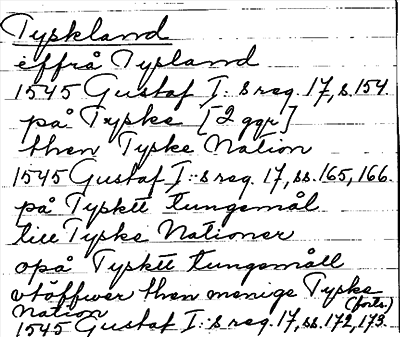 Tyskland
effrå Tyskland
1545 Gustaf I:s reg. 17, s. 154.
på Tyske [2 ggr]
then Tyske Nation
1545 Gustaf I:s reg. 17, ss. 165, 166.
på Tysktt tungemål
till Tyske Nationer
opå Tysktt tungemåll
vtöffwer then menige Tyske
Nation (forts.)
1545 Gustaf I:s reg. 17, ss. 172, 173.